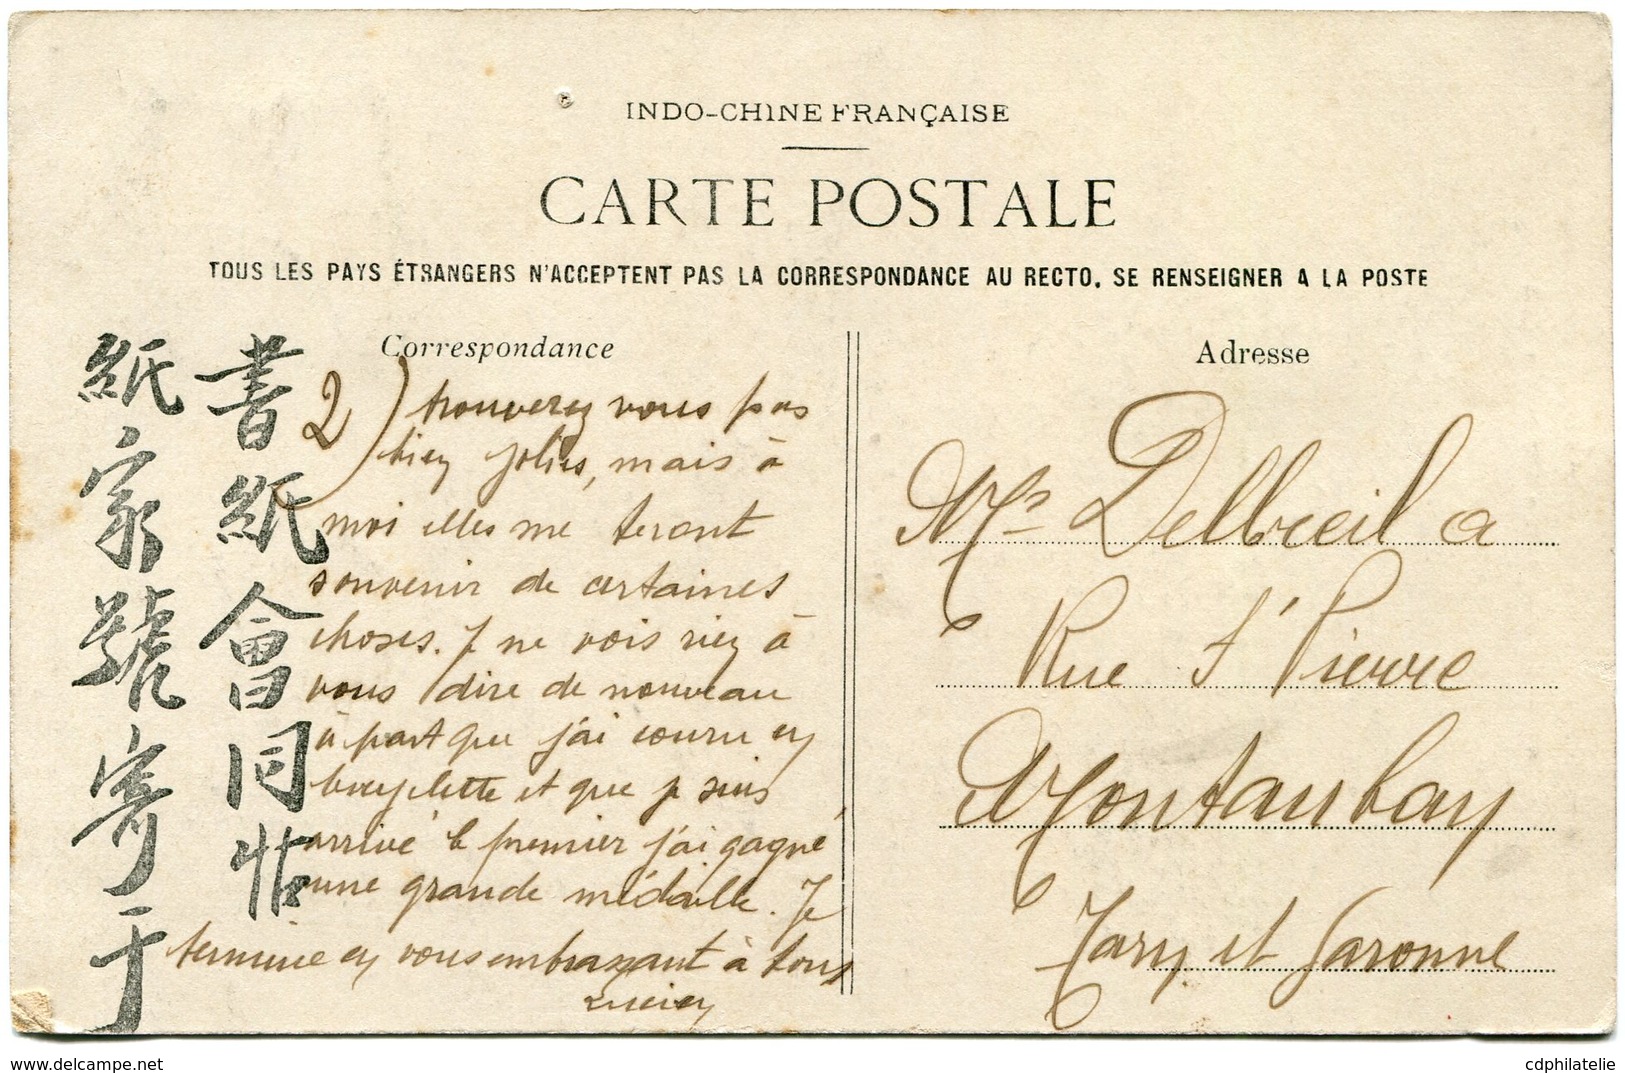 INDO-CHINE FRANÇAISE
CARTE POSTALE
TOUS LES PAYS ÉTRANGERS N'ACCEPTENT PAS LA CORRESPONDANCE AU RECTO. SE RENSEIGNER A LA POSTE
Correspondance
書紙會同
紙家號寄于
2) trouverez vous pas
bien jolies, mais à
moi elles me feront
souvenir de certaines
choses. Je ne vois rien à
vous dire de nouveau
à part que j'ai couru en
bicyclette et que je suis
arrivé le premier j'ai gagné
une grande médaille. Je
termine en vous embrassant à tous
Lucien
Adresse
Mr Delbreil a
Rue St Pierre
Montauban
Tarn et Garonne
cdphilatelie